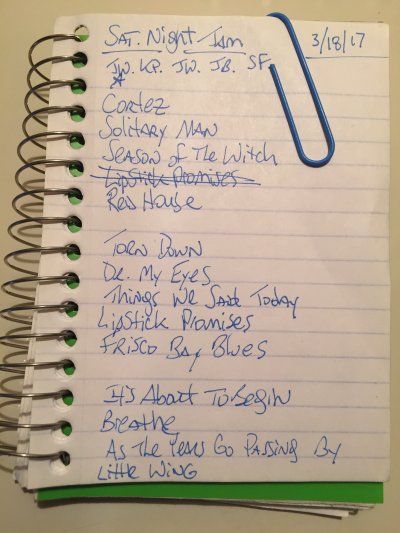 Sat. Night Jam
3/18/17
JW. KP. JW. JB. SF
Cortez
Solitary Man
Season of The Witch
Lipstick Promises
Red House
Torn Down
Dr. My Eyes
Things We Said Today
Lipstick Promises
Frisco Bay Blues
It's About To Begin
Breathe
As The Years Go Passing By
Little Wing